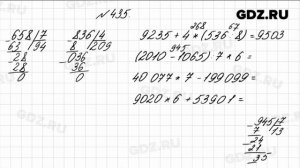 GDZ.RU
№ 435.
658 | 7
63 | 94
28
28
0
836 | 4
8 | 209
036
36
0
268 67
9235 + 4 * (536 : 8) = 9503
945
(2010 - 1065) : 7 * 6 =
40077 * 7 - 199099 =
9020 * 6 + 53901 =
945 | 7
7 | 13
24
21
35